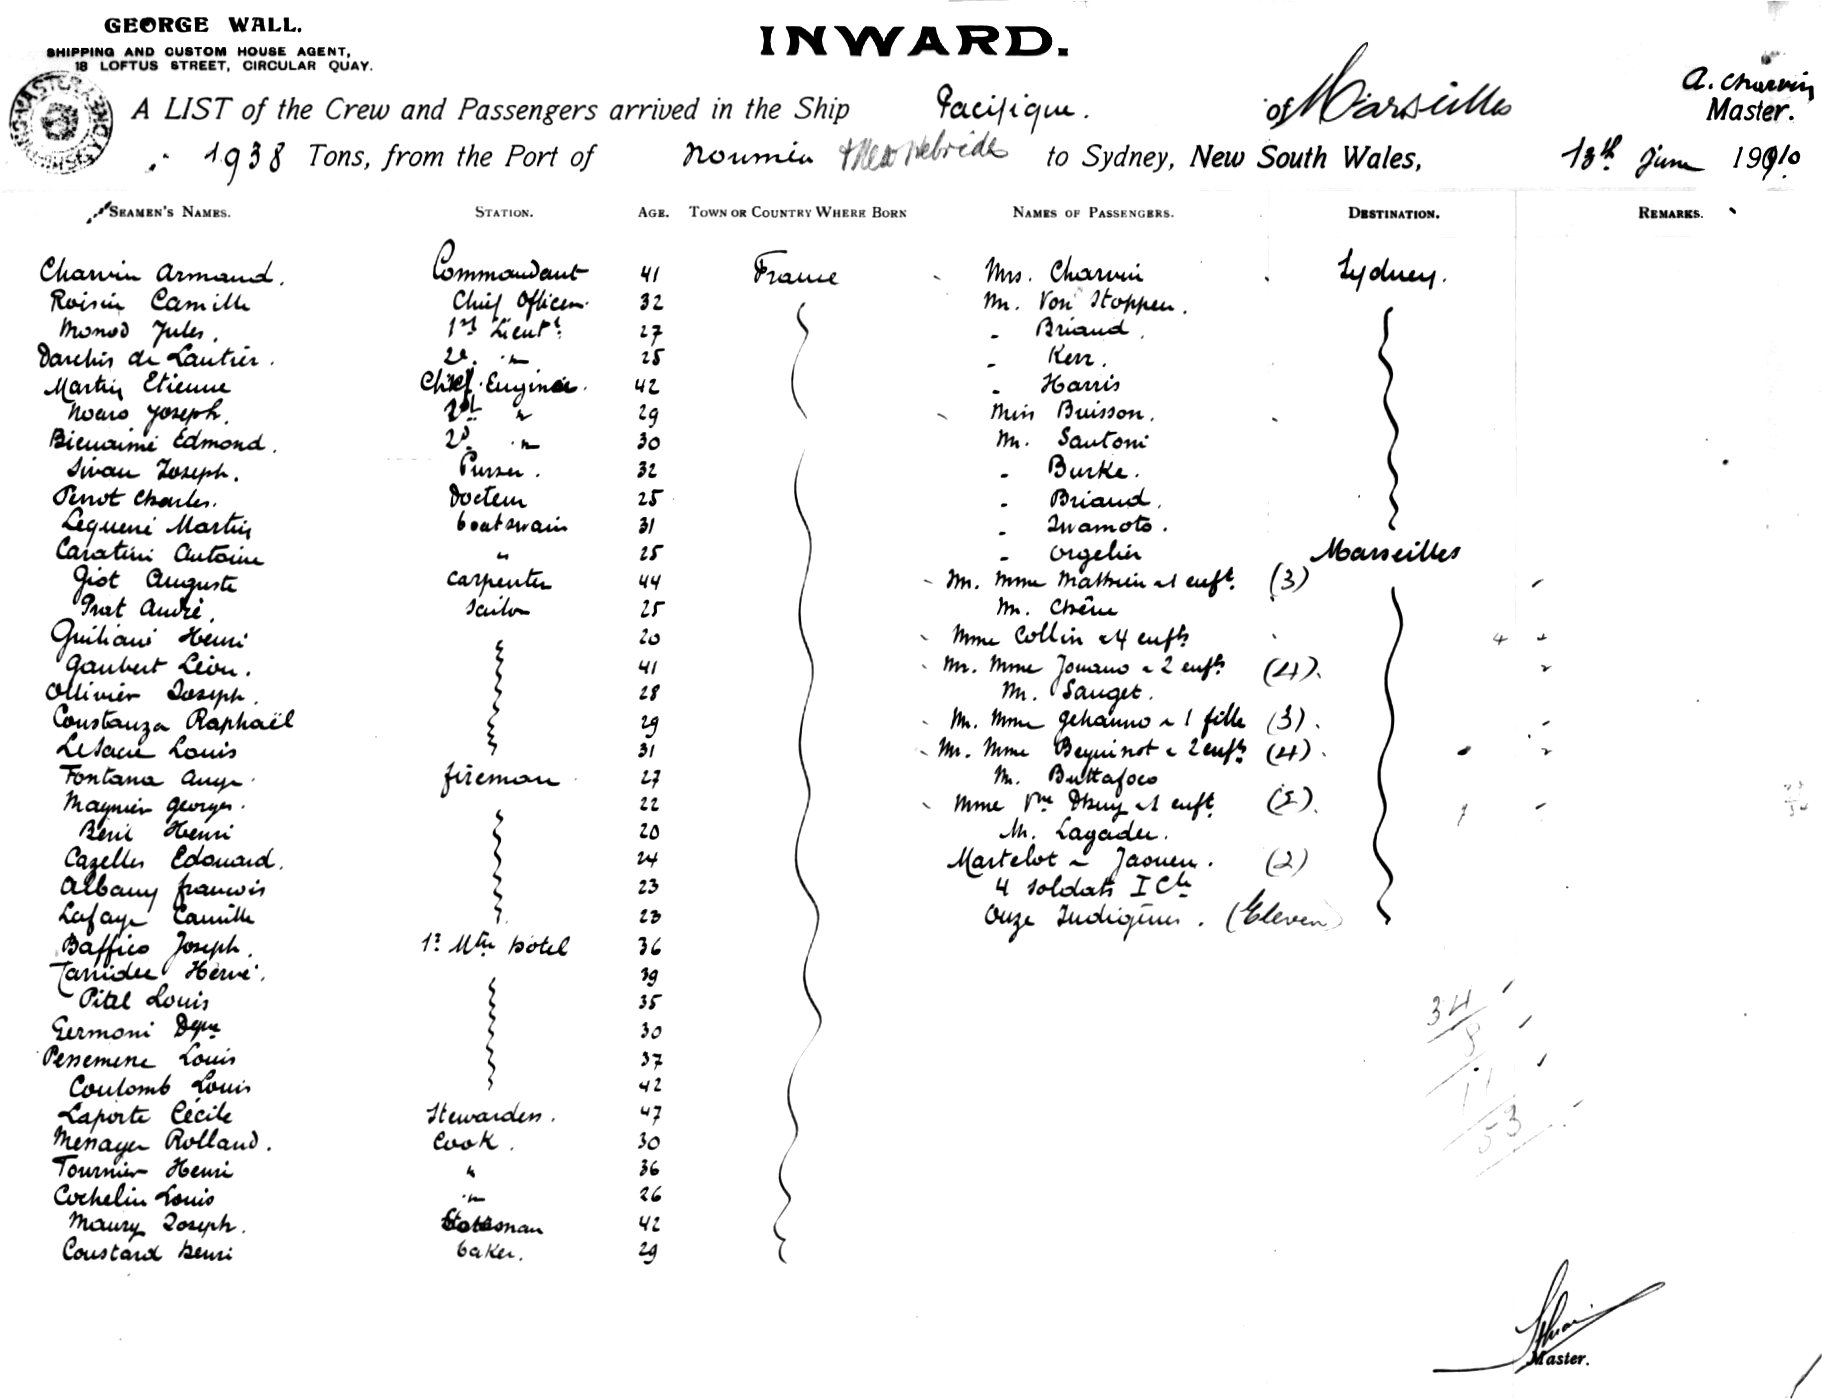 GEORGE WALL.
SHIPPING AND CUSTOM HOUSE AGENT,
18 LOFTUS STREET, CIRCULAR QUAY.
INWARD.
A LIST of the Crew and Passengers arrived in the Ship Pacifique. of Marseilles A. Charvin Master.
1938 Tons, from the Port of Noumea & New Hebrides to Sydney, New South Wales, 13th June 1910
SEAMEN'S NAMES. STATION. AGE. TOWN OR COUNTRY WHERE BORN NAMES OF PASSENGERS. DESTINATION. REMARKS.
Charvin Armand. Commandant 41 France Mrs. Charvin Sydney.
Roisin Camille Chief Officer. 32 Mr. Von Stoppen.
Monod Jules. 1st Lieut. 27 - Briand.
de Lautier. 2e. " 25 - Kerr.
Martin Etienne Chief Engineer. 42 - Harris
Noaro Joseph. " 29 Miss Buisson.
Bienaimé Edmond. 2d " 30 Mr. Santoni
Sivan Joseph. Purser. 32 - Burke.
Perrot Charles. Docteur 25 - Briand.
Lequeré Martin boatswain 31 - Iwamoto.
Caratini Antoine " 25 - Orgelin Marseilles
Giot Auguste carpenter 44 Mr. Mme Mathieu & 1 enft. (3)
Prat André. Sailor 25 Mr. Chêne
Giuliani Henri 20 Mme Collin & 4 enfts
Gaubert Léon. 41 Mr. Mme Jouano & 2 enfts (4).
Ollivier Joseph. 28 Mr. Sauget.
Constanza Raphaël 29 Mr. Mme Gehanno & 1 fille (3).
Lesacie Louis 31 Mr. Mme Bequinot & 2 enfts (4).
Fontana Ange. fireman 27 Mr. Buttafoco
Maynier Georges. 22 Mme Vve & 1 enft. (2).
Beril Henri 20 M. Lagadec.
Cazelles Edouard. 24 Martelot & Jaouen. (2)
Albany francois 23 4 soldats I Cle
Lafaye Camille 23 Onze Indigènes. (Eleven)
Baffico Joseph. 1r Mtre hotel 36
Tanidec Hervé. 39
Pitel Louis 35
Germoni 30
Pessemene Louis 37
Coulomb Louis 42
Laporte Cécile Stewardess. 47
Menager Rolland. Cook. 30
Tournier Henri " 36
Cochelin Louis " 26
Maury Joseph. 42
Coustard Henri baker. 29
34
8
11
53
Master.